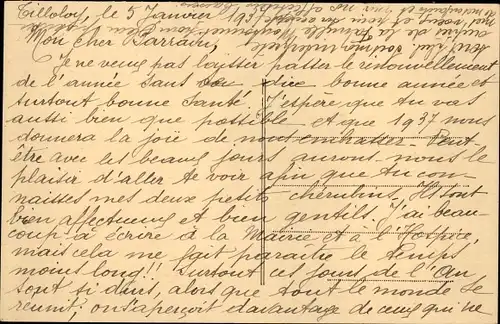 Tilloloy, le 5 Janvier 1937
Mon cher Parrain,
Je ne veux pas laisser passer le renouvellement
de l'année sans te dire bonne année et
surtout bonne Santé. J'espère que tu vas
aussi bien que possible et que 1937 nous
donnera la joie de nous embrasser. Peut
être avec les beaux jours aurons-nous le
plaisir d'aller te voir afin que tu con-
naisses mes deux petits chérubins. Ils sont
bien affectueux et bien gentils. J'ai beau-
coup à écrire à la Mairie et à l'Hospice,
mais cela me fait paraître le temps
moins long!! Surtout ces jours de l'An
sont si durs, alors que tout le monde se
réunit, on s'aperçoit davantage de ceux qui ne